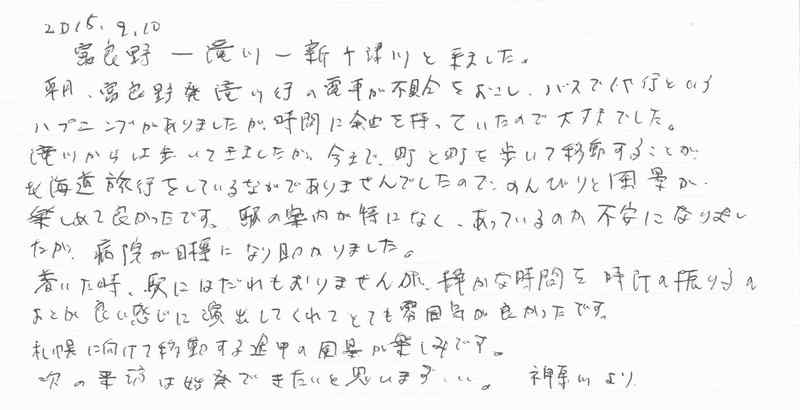 2015.9.10
富良野ー滝川ー新十津川と来ました。
朝、富良野発滝川行の電車が不具合をおこし、バスで代行という
ハプニングがありましたが、時間に余由を持っていたので大丈夫でした。
滝川からは歩いてきましたが、今まで、町と町を歩いて移動することが、
北海道旅行をしているなかでありませんでしたので、のんびりと風景が、
楽しめて良かったです。駅の案内が特になく、あっているのか不安になりまし
たが、病院が目標になり助かりました。
着いた時、駅にはだれもおりませんが、静かな時間を時計の振り子の
おとが良い感じに演出してくれてとても雰囲気が良かったです。
札幌に向けて移動する途中の風景が楽しみです。
次の来訪は始発できたいと思います…。 神奈川より